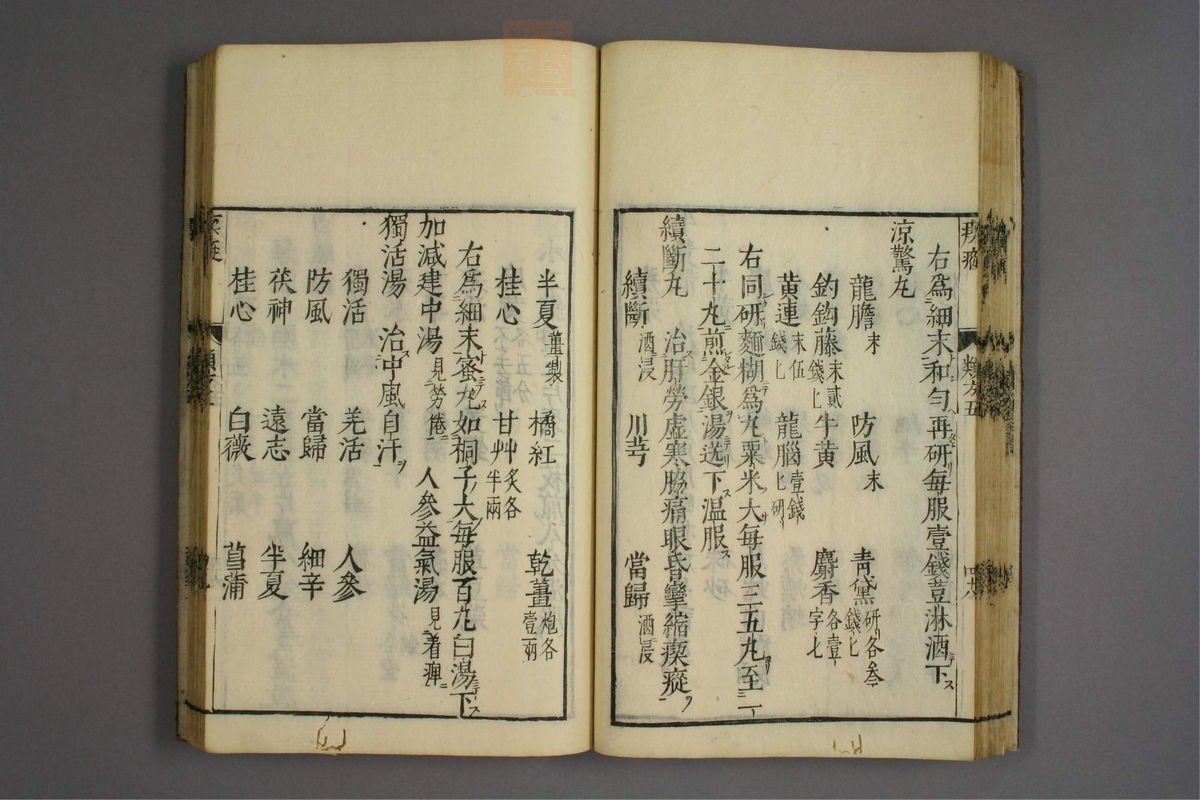 右為細末和勻再研每服壹錢荳淋酒下
涼驚丸
龍膽末 防風末 青黛研各叄錢匕
釣鈎藤末貳錢匕 牛黃 麝香各壹字七
黃連末伍錢匕 龍腦壹錢匕研
右同研麵糊為丸粟米大每服三五丸至一
二十丸煎金銀湯送下温服
續斷丸 治肝勞虛寒脇痛眼昏攣縮瘈瘲
續斷酒浸 川芎 當歸酒浸
半夏薑製 橘紅 乾薑炮各壹兩
桂心 甘艸炙各半兩
右為細末蜜丸如桐子大每服百丸白湯下
加減建中湯見勞倦 人參益氣湯見着痺
獨活湯 治中風自汗
獨活 羌活 人參
防風 當歸 細辛
茯神 遠志 半夏
桂心 白薇 菖蒲